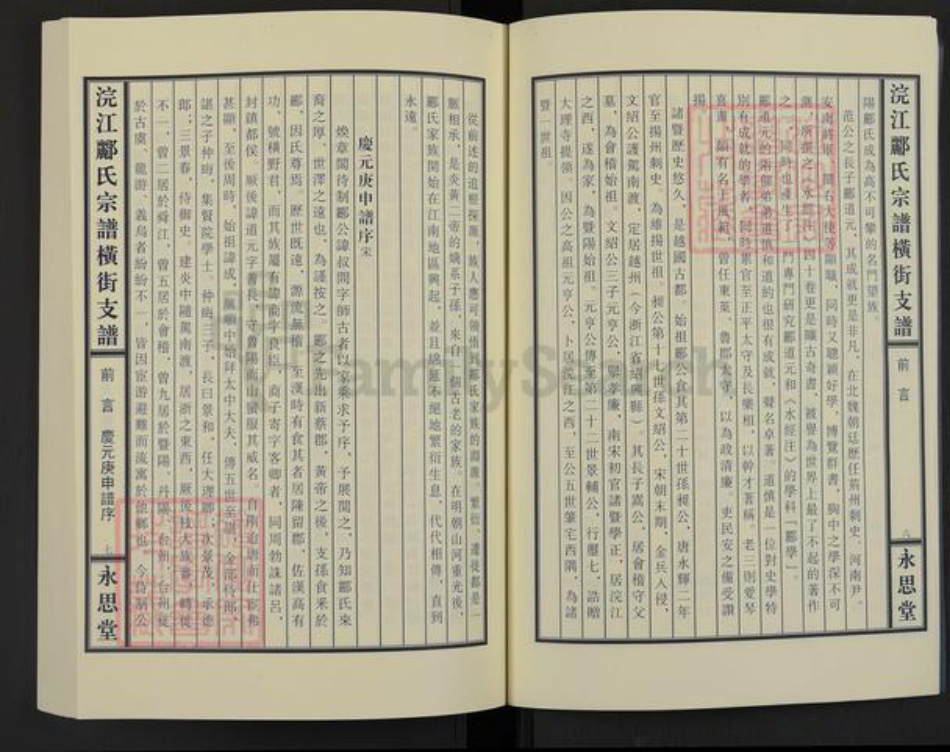 浣江酈氏宗譜橫街支譜
前言
八
永思堂
陽酈氏成為高不可攀的名門望族。
范公之長子酈道元，其成就更是非凡，在北魏朝廷歷任荊州刺史、河南尹、
安南將軍、關右大使等顯職，同時又聰穎好學，博覽群書，胸中之學深不可
測，所撰之《水經注》四十卷更是曠古奇書，被譽為世界上最了不起的著作
之一，同時也產生了一門專門研究酈道元和《水經注》的學科『酈學』。
酈道元的兩個弟弟道慎和道約也很有成就，聲名卓著。道慎是一位對史學特
別有成就的學者，同時累官至正平太守及長樂相，以幹才著稱，老三則愛琴
喜書，頗有名士風範，曾任東萊、魯郡太守，以為政清廉、吏民安之備受讚
揚。
諸暨歷史悠久，是越國古都，始祖酈公食其第二十世孫昶公，唐永輝二年
官至揚州刺史。為維揚世祖。昶公第十七世孫文紹公，宋朝末期，金兵入侵，
文紹公護駕南渡，定居越州（今浙江省紹興縣）。其長子嵩公，居會稽守父
墓，為會稽始祖。文紹公三子元亨公，舉孝廉，南宋初官諸暨學正，居浣江
之西，遂為家，為暨陽始祖。元亨公傳至第二十二世景輔公，行慶七，誥贈
大理寺提領，因公之高祖元亨公，卜居浣江之西，至公五世肇宅西隅，為諸
暨一世祖。
從前述的追根探源，族人應可領悟到酈氏家族的淵源、繁衍、遷徙都是一
脈相承，是炎黃二帝的嫡系子孫，來自一個古老的家族。在明朝山河重光後，
酈氏家族開始在江南地區興起，並且綿延不絕地繁衍生息，代代相傳，直到
永遠。
慶元庚申譜序 宋
煥章閣待制酈公諱叔問字師古者以家乘求予序，予展閱之，乃知酈氏來
裔之厚、世澤之遠也，為謹按之。酈之先出新蔡郡，黃帝之後，支孫食釆於
酈，因氏尊焉，歷世既遠，源流無稽，至漢時有食其者居陳留郡，佐漢高有
功，號橫野君，而其族屬有諱商字良臣，商子寄字客卿者，同周勃誅諸呂，
封鎮都侯。厥後諱道元字善長，守魯陽而山蠻服其威名。自隋迨唐而仕宦弗
甚顯，至後周時，始祖諱成，顯順中始拜太中大夫，傳五世至諶，金部侍郎、
諶之子仲晦，集賢院學士。仲晦三子，長曰景和，任大理卿；次景茂，承德
郎；三景春，侍御史。建炎中隨駕南渡，居浙之東西，厥後枝大族蕃，轉徙
不一，曾二居於舜江，曾五居於會稽，曾九居於暨陽、丹陽、台州，台州徙
於古虞、龍游、義烏者紛紛不一，皆因宦游避難而流寓於他鄉也。今煥制公
浣江酈氏宗譜橫街支譜
前言 慶元庚申譜序
七
永思堂
FamilySearch